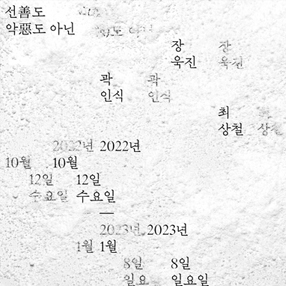 선善도
악惡도 아닌
장 장
욱진 욱진
곽 곽
인식 인식
최 최
상철 상철
2022년 2022년
10월 10월
12일 12일
수요일 수요일
—
2023년 2023년
1월 1월
8일 8일
일요일 일요일